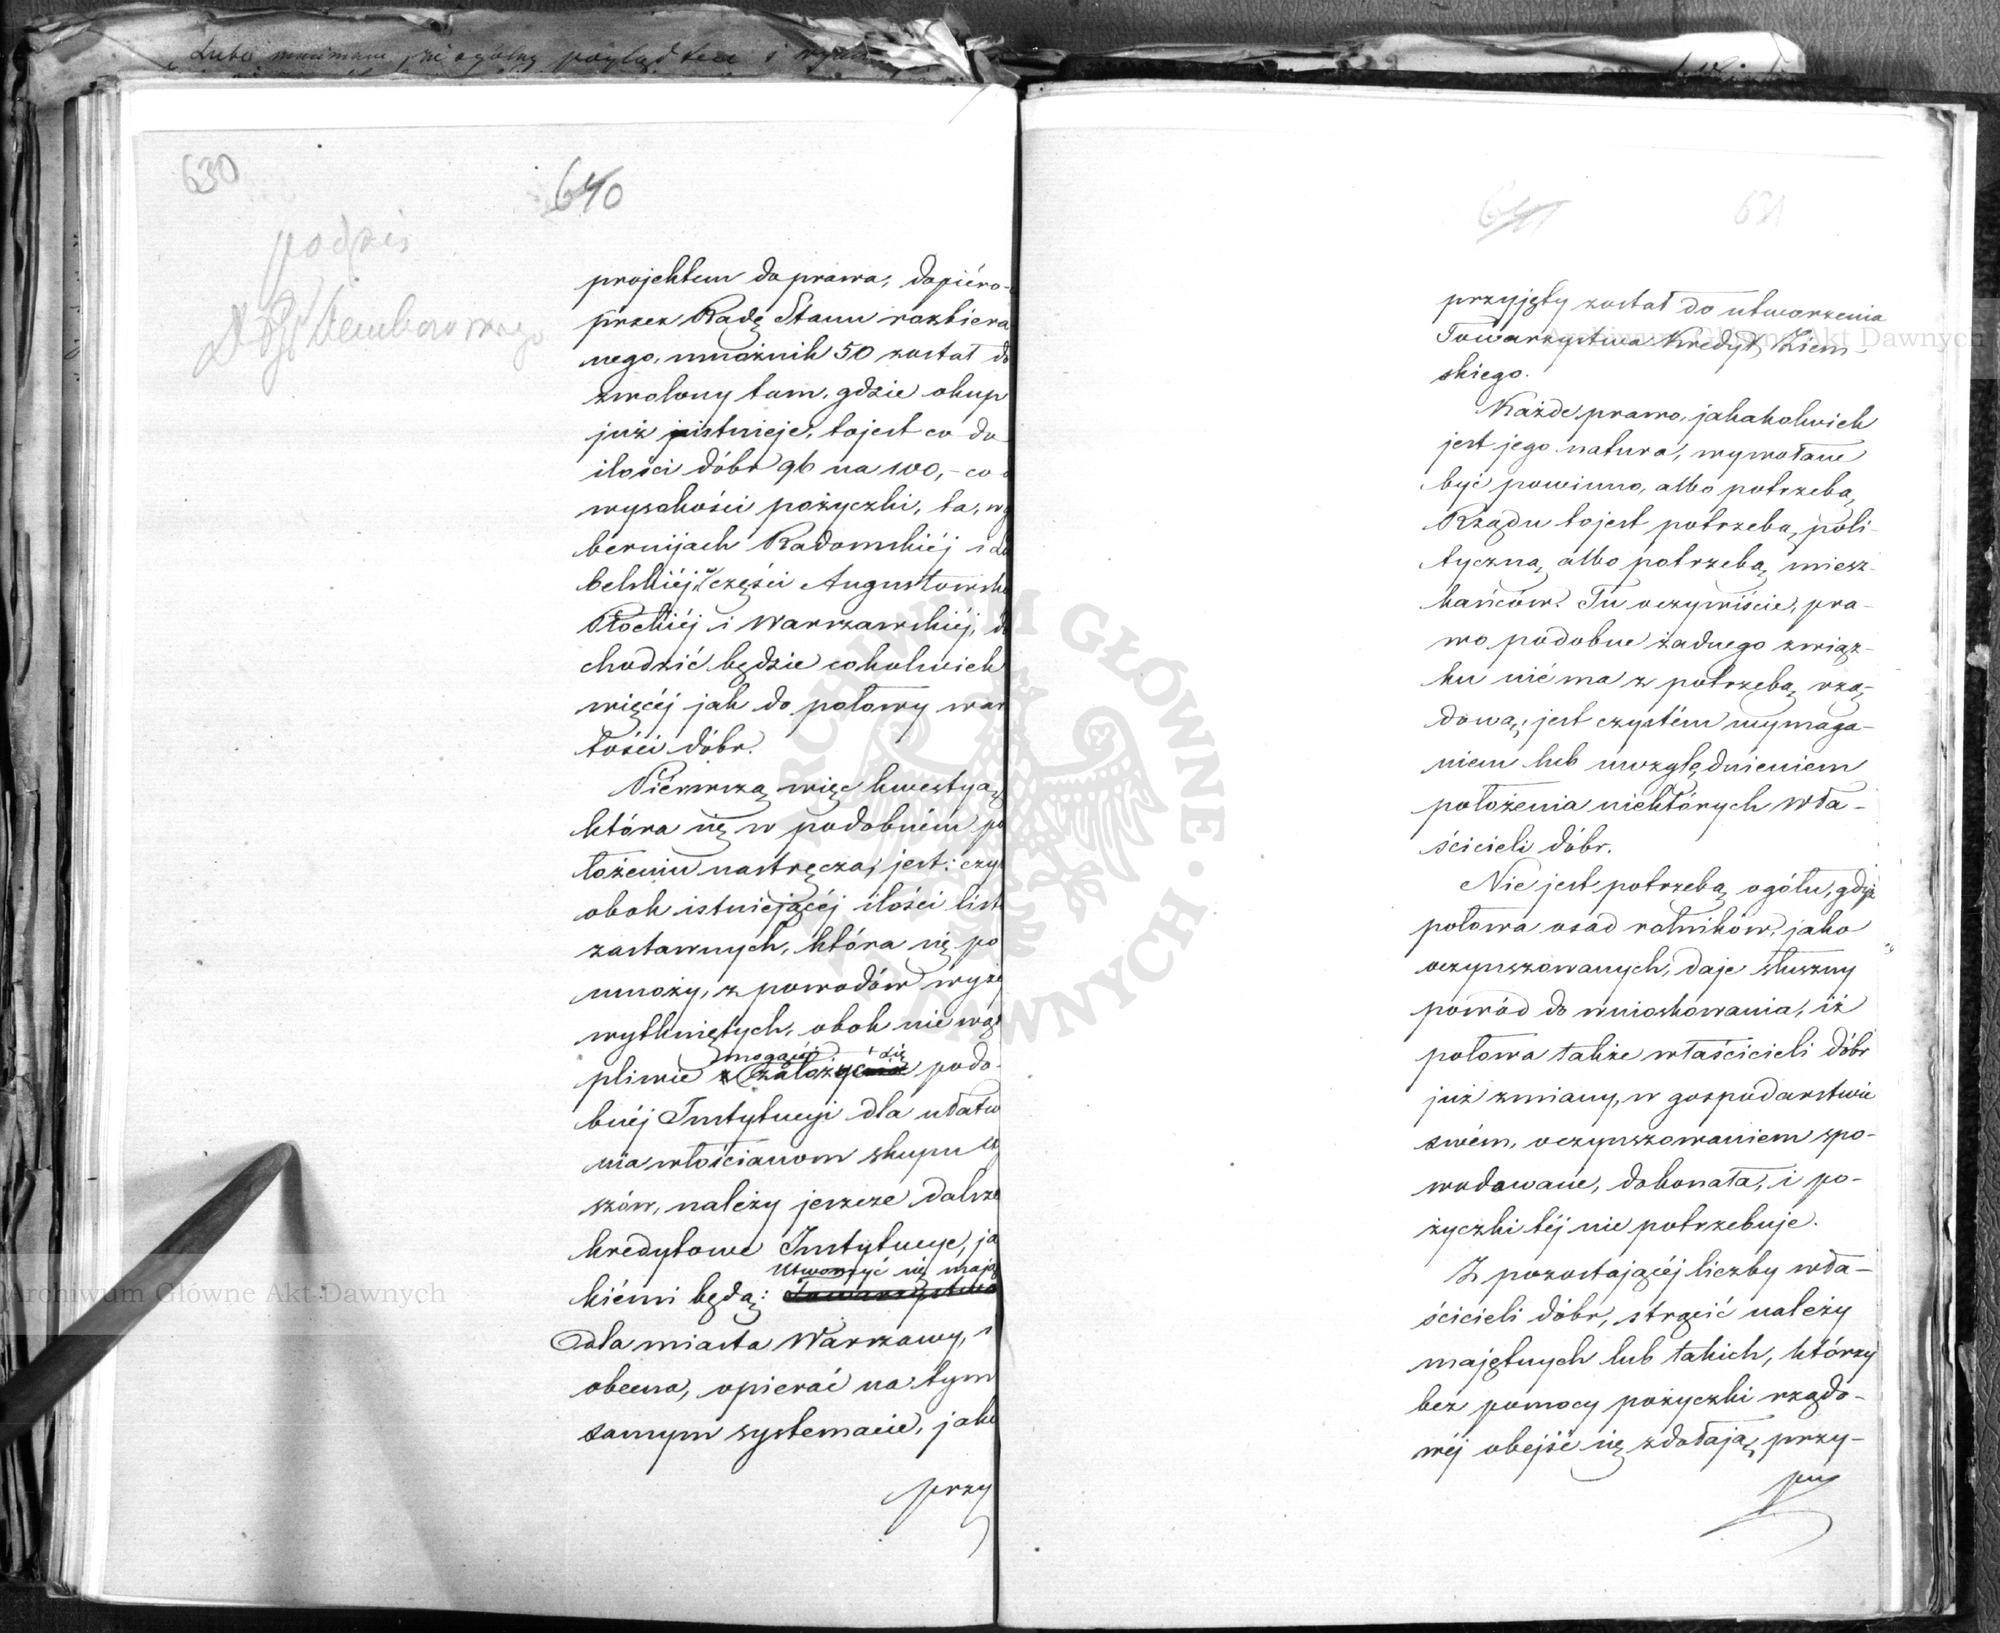 630
640
podpis
projektem do prawa, dopiéro
przez Radę Stanu rozbiera
nego, mnożnik 50 został do
zwolony tam, gdzie okup
już istnieje, tojest co do
ilości dóbr 96 na 100, – co
wysokości pożyczki, ta, w
bernijach Radomskiéj i Lu
belskiéj, w części Augustowski
Płockiéj i Warszawskiéj, do
chodzić będzie cokolwiek
więcéj jak do połowy war
tości dóbr.
Piérwszą więc kwestyą,
która się w podobném po
łożeniu nastręcza, jest: czy
obok istniejącéj ilości list
zastawnych, która się po
mnoży, z powodów wyżéj
wytkniętych, obok nie wąt
pliwie mogącéj założyć się podo-
bnéj Instytucyi dla ułatw
nia włościanom skupu cz
szów, należy jeszcze dalsze
kredytowe Instytucye, ja
kiémi będą: utworzyć się mają
dla miasta Warszawy, i
obecna, opierać na tym
samym systemacie, jak
przy
641
631
przyjęty został do utworzenia
Towarzystwa Kredyt. Ziem-
skiego.
Każde prawo, jakakolwiek
jest jego natura, wywołane
być powinno, albo potrzebą
Rządu tojest potrzebą poli-
tyczną, albo potrzebą miesz-
kańców. Tu oczywiście, pra-
wo podobne żadnego związ-
ku niéma z potrzebą rzą-
dową, jest czystém wymaga-
niem lub uwzględnieniem
położenia niektórych wła-
ścicieli dóbr.
Nie jest potrzebą ogółu, gdyż
połowa osad rolników, jako
oczynszowanych, daje słuszny
powód do wnioskowania, iż
połowa także właścicieli dóbr
już zmiany, w gospodarstwie
swém, oczynszowaniem spo-
wodowane, dokonała, i po-
życzki téj nie potrzebuje.
Z pozostającéj liczby wła-
ścicieli dóbr, strącić należy
majętnych lub takich, którzy
bez pomocy pożyczki rządo-
wéj obejść się zdołają, przy-
pu
Archiwum Główne Akt Dawnych
Archiwum Główne Akt Dawnych
ARCHIWUM GŁÓWNE AKT DAWNYCH